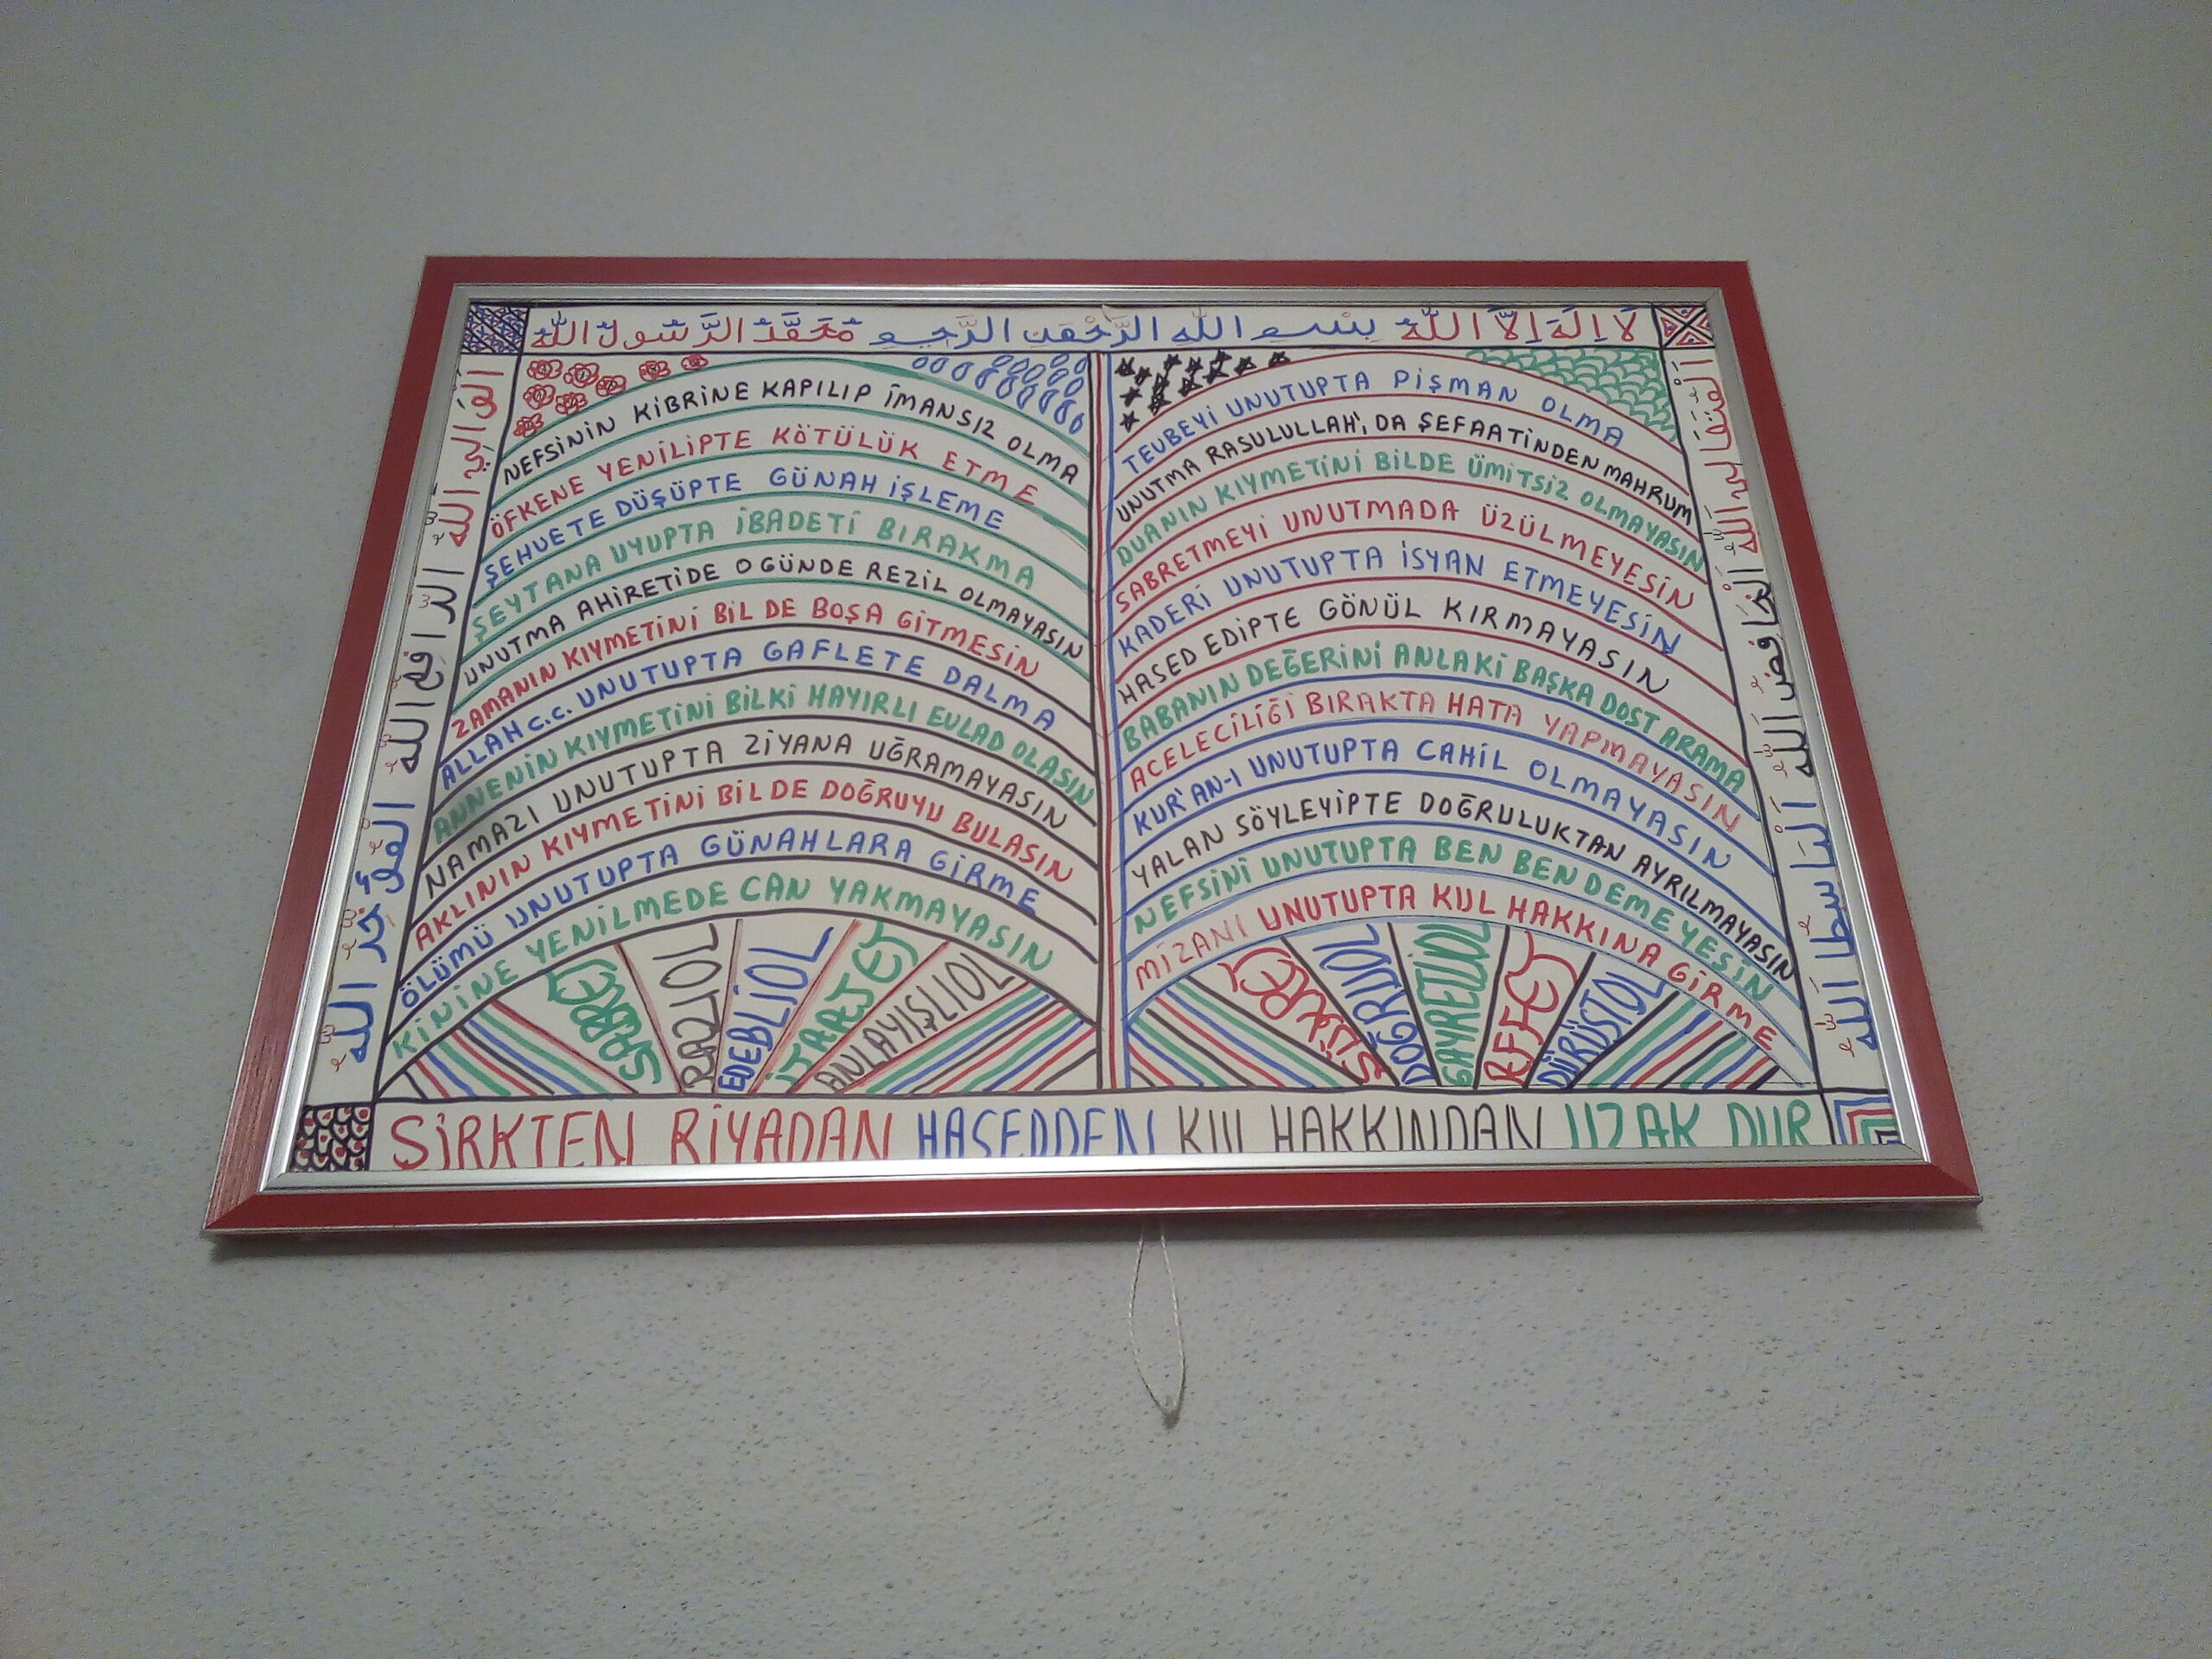 لَا اِلَهَ اِلَّا اللّٰهُ بِسْمِ اللّٰهِ الرَّحْمٰنِ الرَّحِيمِ مُحَمَّدُ الرَّسُولُ اللّٰه
NEFSİNİN KİBRİNE KAPILIP ÎMANSIZ OLMA
ÖFKENE YENİLİPTE KÖTÜLÜK ETME
ŞEHVETE DÜŞÜPTE GÜNAH İŞLEME
ŞEYTANA UYUPTA İBADETİ BIRAKMA
UNUTMA AHİRETİDE O GÜNDE REZİL OLMAYASIN
ZAMANIN KIYMETİNİ BİL DE BOŞA GİTMESİN
ALLAH C.C. UNUTUPTA GAFLETE DALMA
ANNENİN KIYMETİNİ BİLKİ HAYIRLI EVLAD OLASIN
NAMAZI UNUTUPTA ZİYANA UĞRAMAYASIN
AKLININ KIYMETİNİ BİL DE DOĞRUYU BULASIN
ÖLÜMÜ UNUTUPTA GÜNAHLARA GİRME
KİNİNE YENİLMEDE CAN YAKMAYASIN
SABRET
RAZI OL
EDEBLİ OL
İTAAT ET
ANLAYIŞLI OL
TEVBEYİ UNUTUPTA PİŞMAN OLMA
UNUTMA RASULULLAH'I, DA ŞEFAATİNDEN MAHRUM
DUANIN KIYMETİNİ BİLDE ÜMİTSİZ OLMAYASIN
SABRETMEYİ UNUTMADA ÜZÜLMEYESİN
KADERİ UNUTUPTA İSYAN ETMEYESİN
HASED EDİPTE GÖNÜL KIRMAYASIN
BABANIN DEĞERİNİ ANLAKİ BAŞKA DOST ARAMA
ACELECİLİĞİ BIRAKTA HATA YAPMAYASIN
KUR'AN-I UNUTUPTA CAHİL OLMAYASIN
YALAN SÖYLEYİPTE DOĞRULUKTAN AYRILMAYASIN
NEFSİNİ UNUTUPTA BEN BEN DEMEYESİN
MİZANI UNUTUPTA KUL HAKKINA GİRME
ŞÜKÜR ET
DOĞRU OL
GAYRETLİ OL
AFFET
DÜRÜST OL
ŞİRKTEN RİYADAN HASEDDEN KUL HAKKINDAN UZAK DUR